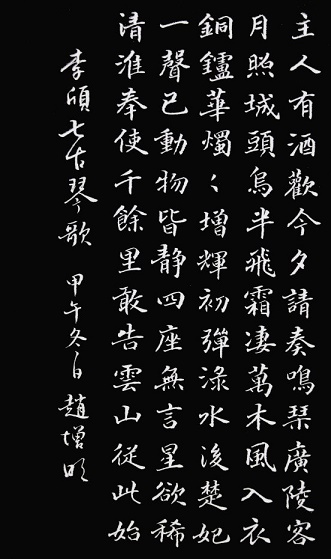 主人有酒歡今夕請奏鳴琹廣陵客
月照城頭烏半飛霜淒萬木風入衣
銅鑪華燭〻增輝初彈淥水後楚妃
一聲已動物皆靜四座無言星欲稀
清淮奉使千餘里敢告雲山從此始
李頎七古琴歌 甲午冬日趙增明